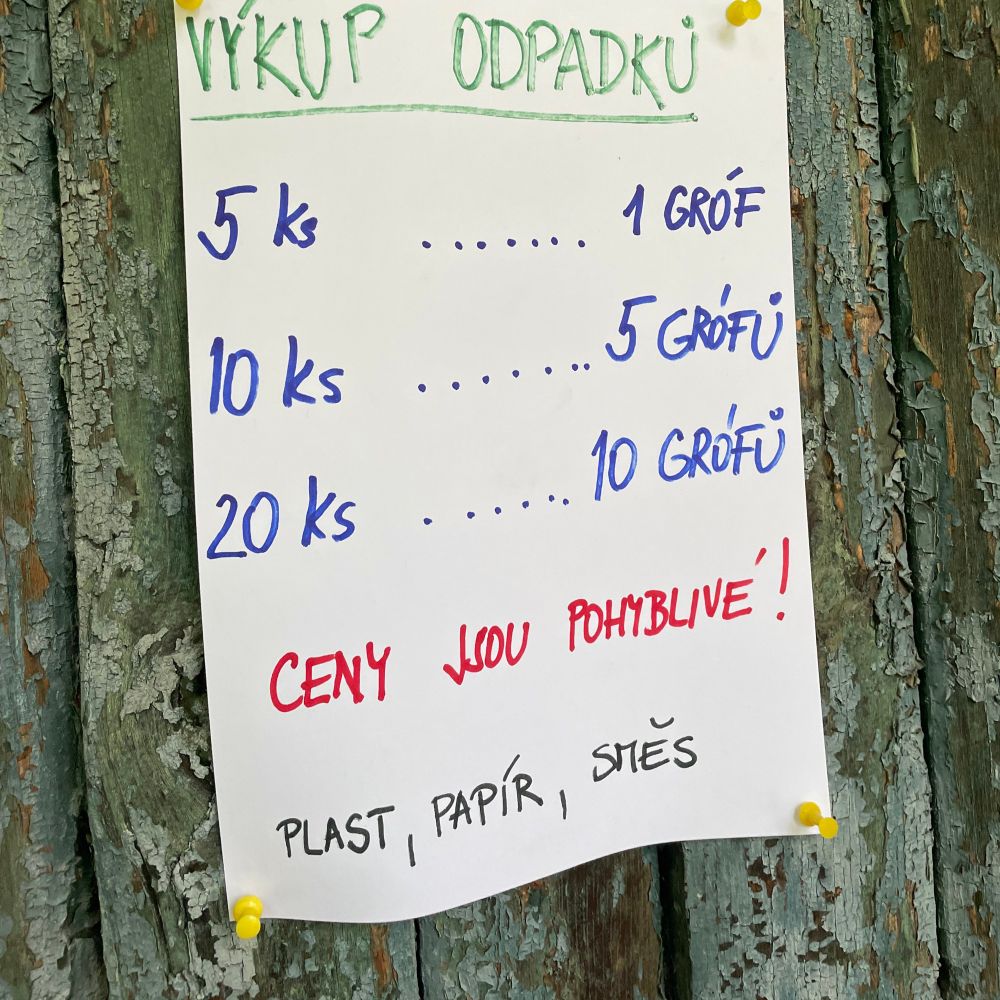 VÝKUP ODPADKŮ
5 ks ....... 1 GRÓF
10 ks ....... 5 GRÓFŮ
20 ks ...... 10 GRÓFŮ
CENY JSOU POHYBLIVÉ!
PLAST, PAPÍR, SMĚS